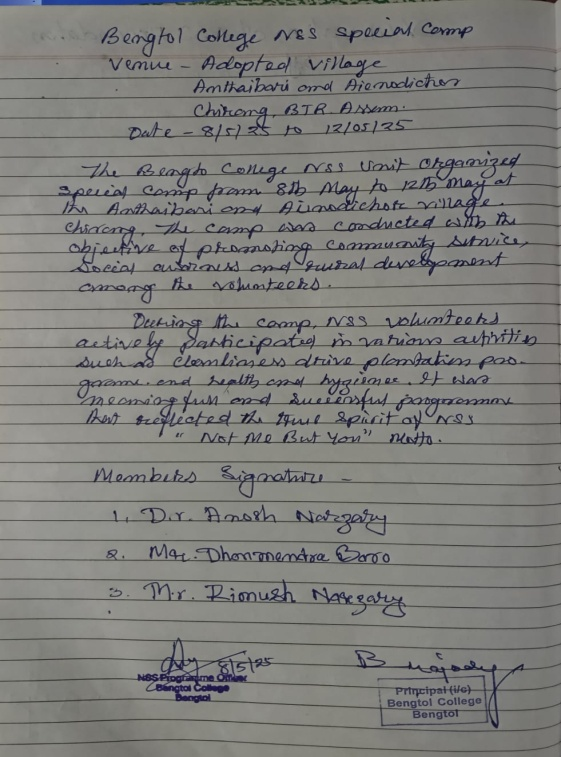 Bengtol College NSS Special Camp
Venue - Adopted Village
Anthaibari and Aienodichor
Chirang, BTR Assam.
Date - 8/5/25 to 12/05/25
The Bengto College NSS Unit Organized
Special Camp from 8th May to 12th May at
the Anthaibari and Aienodichor village.
chirang. The camp was conducted with the
objective of promoting community service,
Social awarness and rural development
among the volunteers.
During the camp, NSS volunteers
actively participated in various activities
such as cleanliness drive plantation pro-
gramme and health and hygiene. It was
meaningfull and successful programme
that reflected the true spirit of NSS
" Not Me But You" Motto.
Members Signature -
1. D.r. Anosh Narzary
2. Mr. Dhonmendra Boro
3. M.r. Rionush Narzary
8/5/25
NSS Programme Officer
Bengtol College
Bengtol
Principal (i/c)
Bengtol College
Bengtol